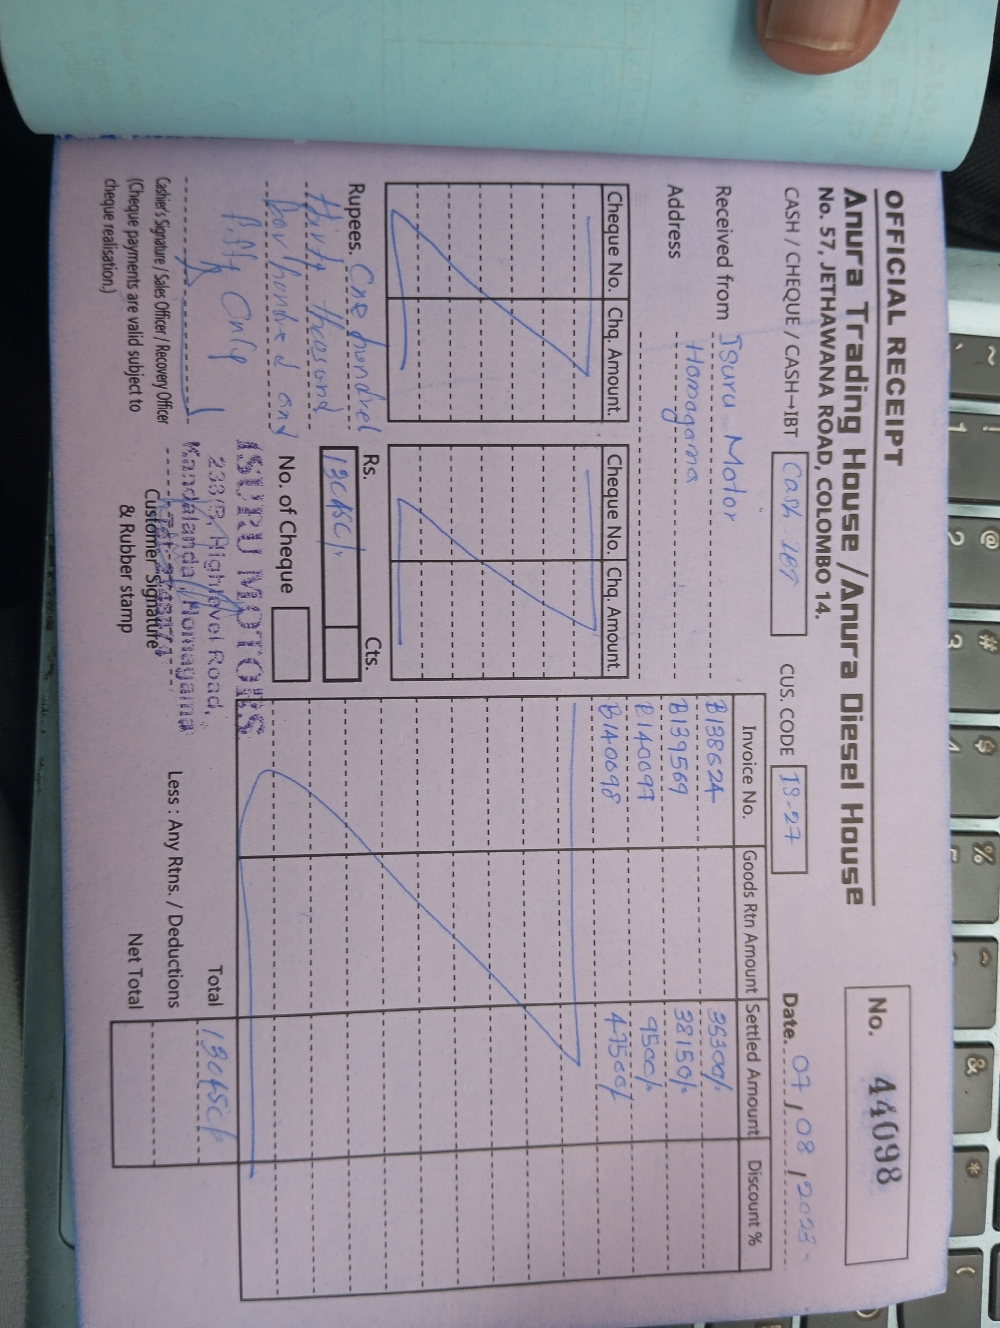 OFFICIAL RECEIPT
No. 44098
Anura Trading House /Anura Diesel House
No. 57, JETHAWANA ROAD, COLOMBO 14.
CASH / CHEQUE / CASH—IBT Cash IBT CUS. CODE IS-27 Date. 07 / 08 / 2023
Received from Isuru Motor
Address Homagama
Cheque No. Chq. Amount. Cheque No. Chq. Amount.
Invoice No. Goods Rtn Amount Settled Amount Discount %
B138624 35300/-
B139569 38150/-
B140697 9500/-
B140698 47500/-
Rupees. One hundred
thirty thousand
four hundred and
fifty Only
Rs. Cts.
130450/-
No. of Cheque
ISURU MOTORS
Highlevel Road,
Kandalanda, Homagama
Cashier's Signature / Sales Officer / Recovery Officer
(Cheque payments are valid subject to
cheque realisation.)
Customer Signature
& Rubber stamp
Total 130450/-
Less : Any Rtns. / Deductions
Net Total